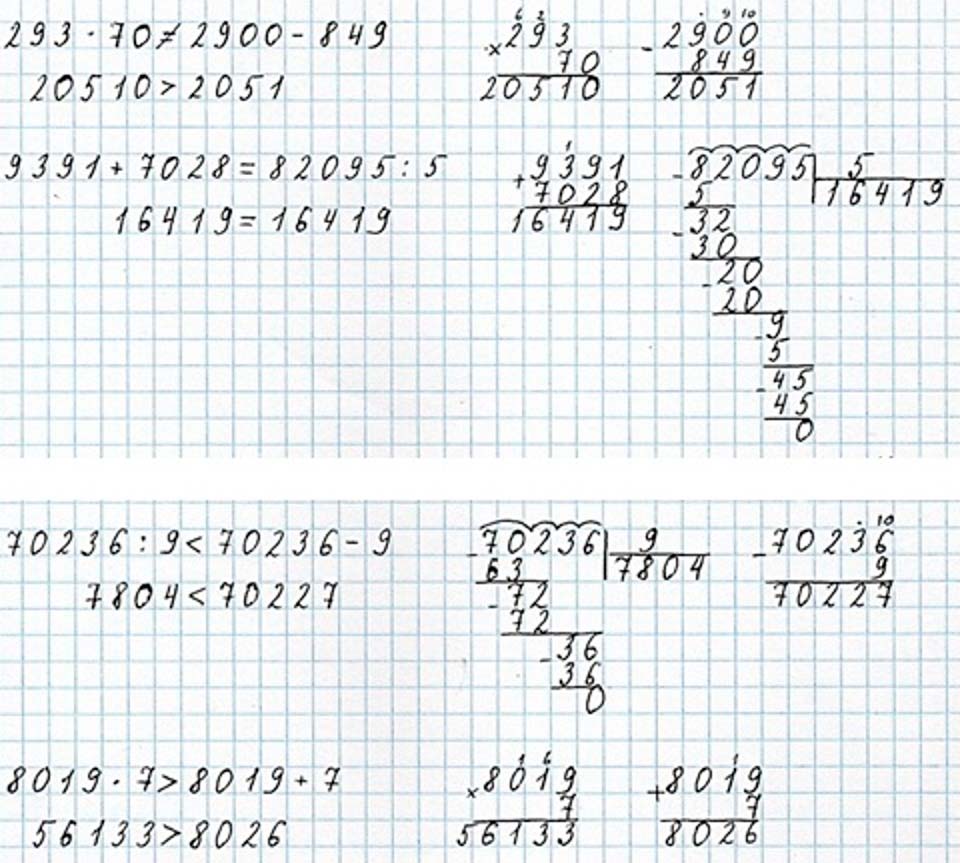 293 · 70 ≠ 2900 - 849
20510 > 2051
6 2
× 293
70
20510
· 9 10
- 2900
849
2051
9391 + 7028 = 82095 : 5
16419 = 16419
1
+ 9391
7028
16419
- 82095 | 5
5 16419
- 32
30
- 20
20
- 9
5
- 45
45
0
70236 : 9 < 70236 - 9
7804 < 70227
- 70236 | 9
63 7804
- 72
72
- 36
36
0
· 10
- 70236
9
70227
8019 · 7 > 8019 + 7
56133 > 8026
1 6
× 8019
7
56133
1
+ 8019
7
8026